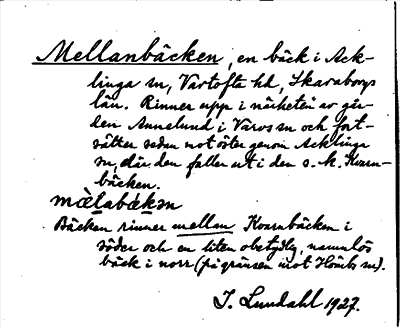 Mellanbäcken, en bäck i Ack-
linga sn, Vartofta hd, Skaraborgs
län. Rinner upp i närheten av går-
den Annelund i Varvs sn och fort-
sätter sedan mot öster genom Acklinga
sn, där den faller ut i den s. k. Kvarn-
bäcken.
mæ̀l̥abækən
Bäcken rinner mellan Kvarnbäcken i
söder och en liten obetydlig, namnlös
bäck i norr (på gränsen mot Hömbs sn).
I. Lundahl 1927.